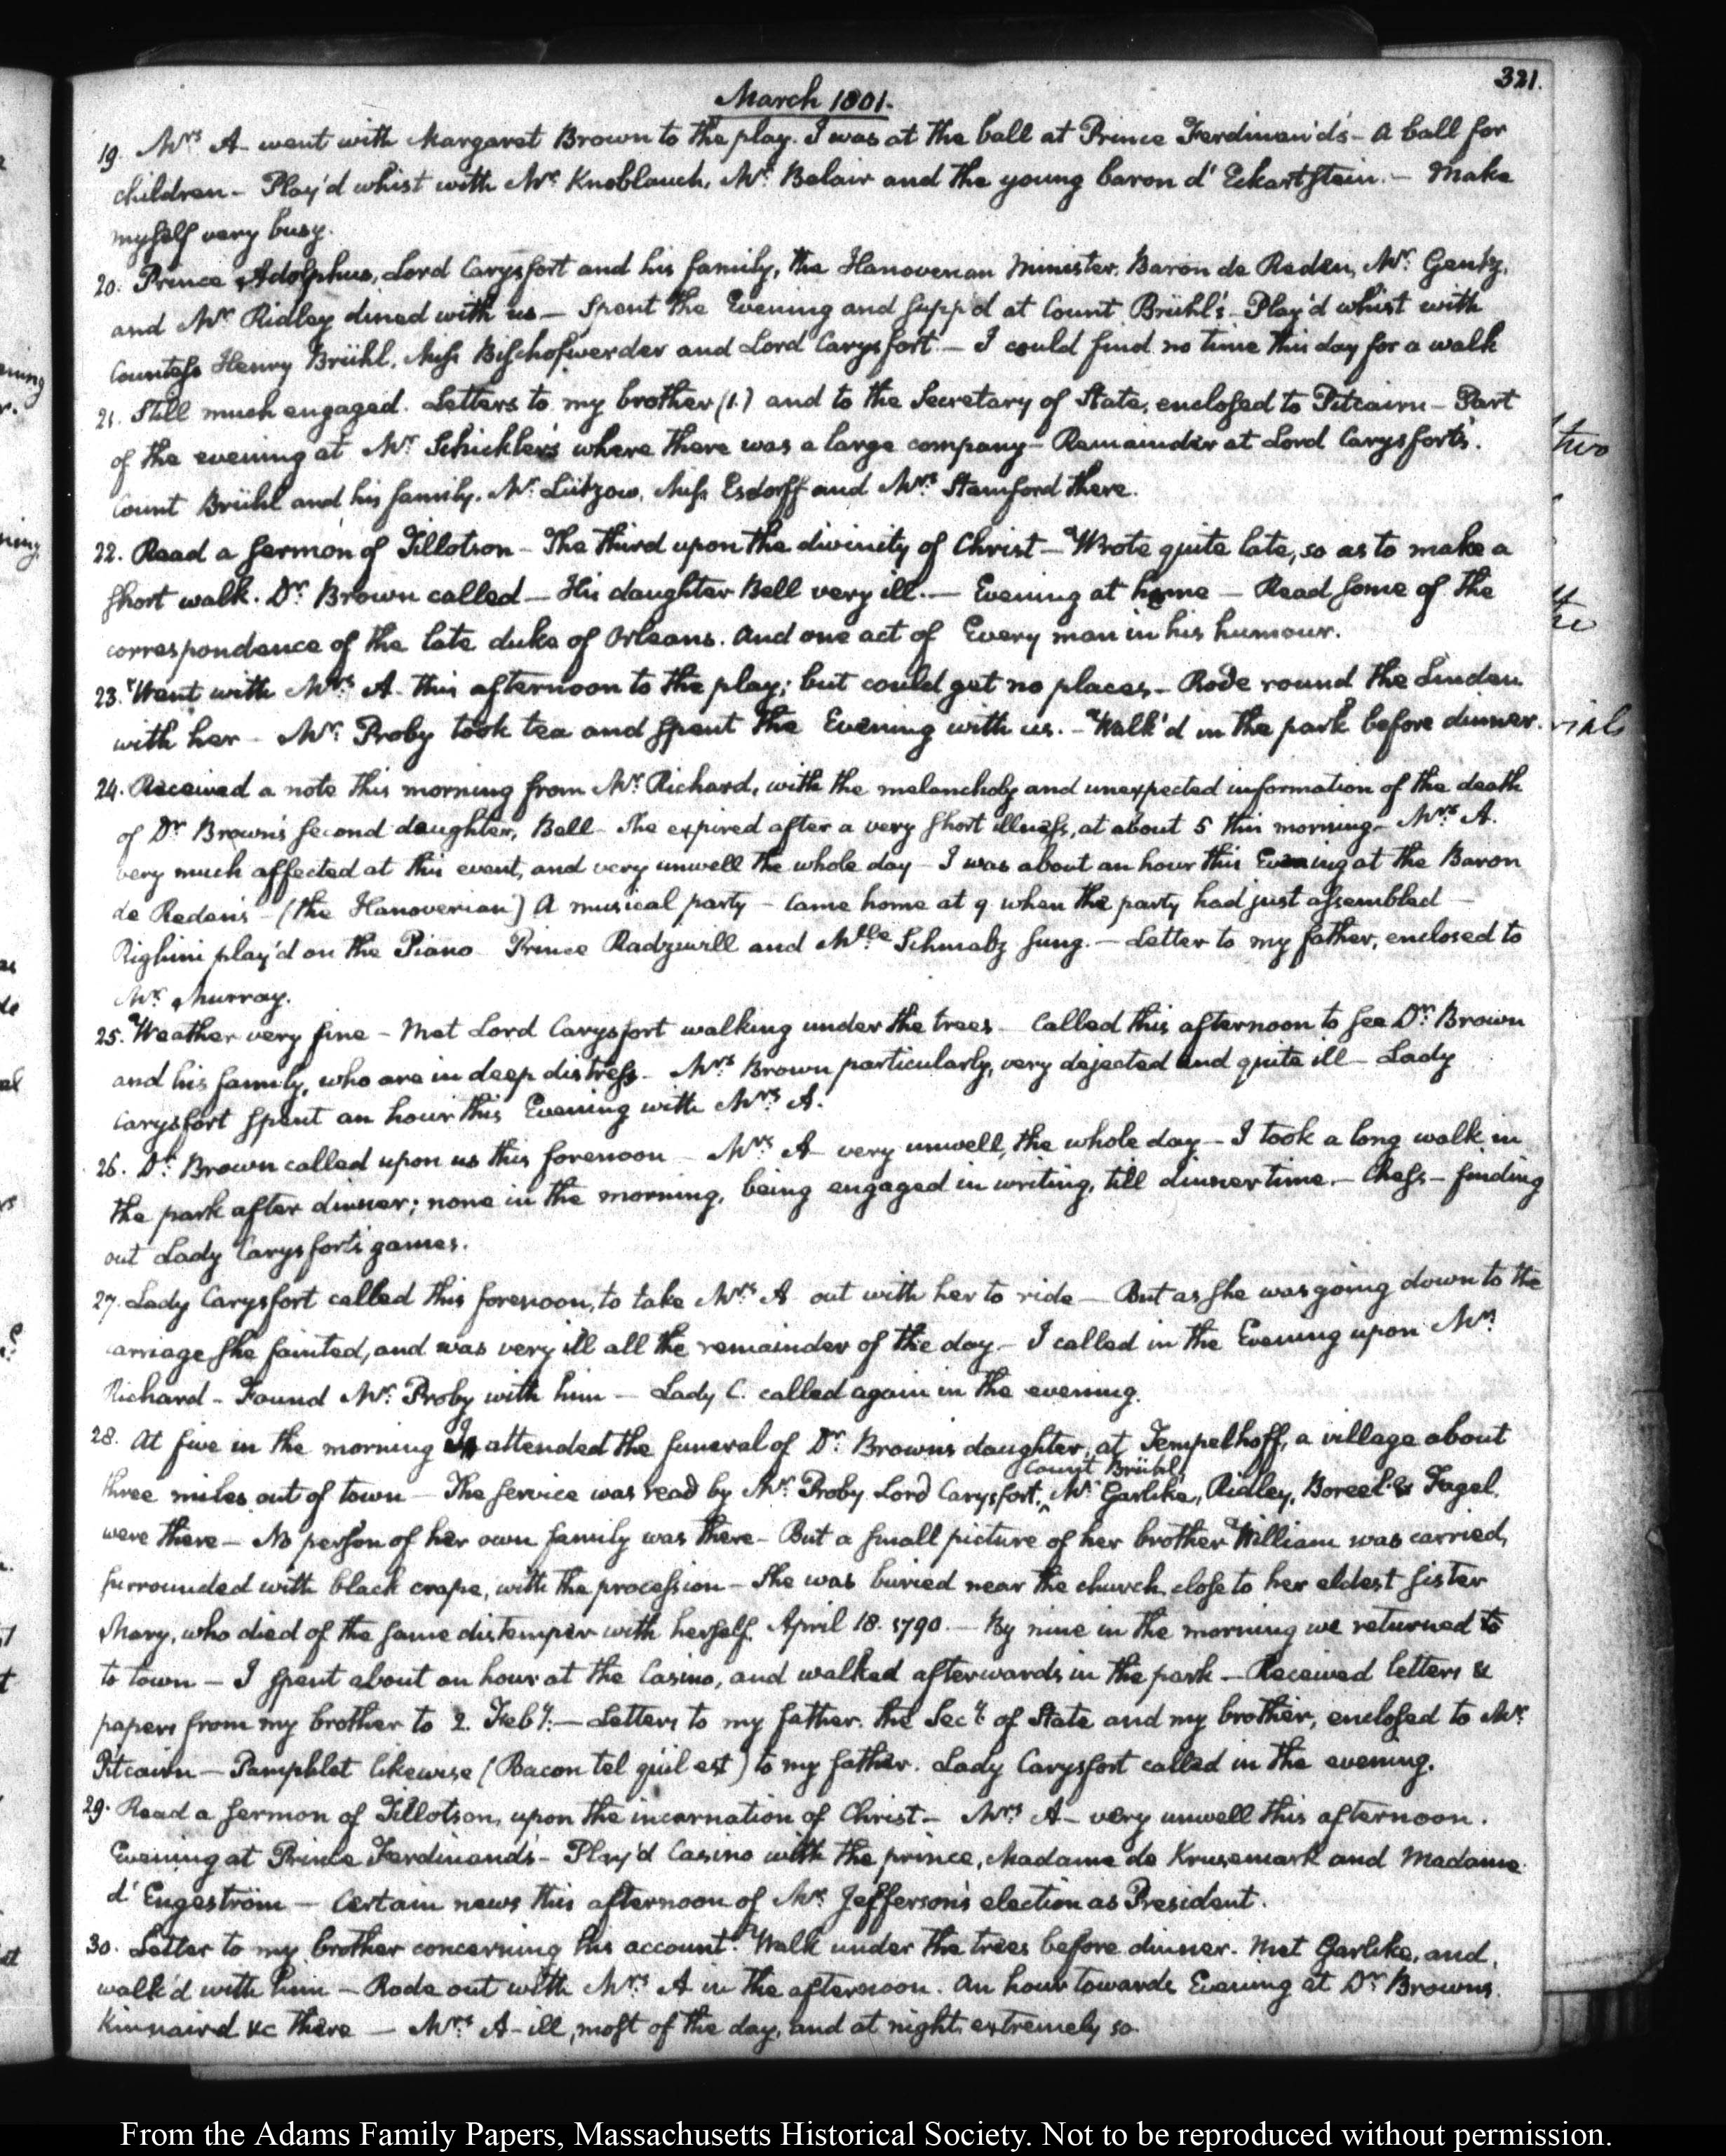 321.
March 1801.
19. Mrs. A. went with Margaret Brown to the play. I was at the ball at Prince Ferdinand's - A ball for
children - Play'd whist with Mr. Knoblauch, Mr. Belair and the young baron d'Eckartstein. - Make
myself very busy.
20. Prince Adolphus, Lord Carysfort and his family, the Hanoverian Minister, Baron de Reden, Mr. Gentz,
and Mr. Ridley dined with us - Spent the Evening and supp'd at Count Brühl's - Play'd whist with
Countess Henry Brühl, Miss Bischofswerder and Lord Carysfort - I could find no time this day for a walk
21. Still much engaged. Letters to my brother (1.) and to the Secretary of State, enclosed to Pitcairn - Part
of the evening at Mr. Schickler's where there was a large company - Remainder at Lord Carysfort's.
Count Brühl and his family, Mr. Lützow, Miss Esdorff and Mrs. Stamford there.
22. Read a sermon of Tillotson - The third upon the divinity of Christ - Wrote quite late, so as to make a
short walk. Dr. Brown called - His daughter Bell very ill. - Evening at home - Read some of the
correspondence of the late duke of Orleans. And one act of Every man in his humour.
23. Went with Mrs. A. this afternoon to the play; but could get no places - Rode round the Linden
with her - Mr. Proby took tea and spent the Evening with us. - Walk'd in the park before dinner.
24. Received a note this morning from Mr. Richard, with the melancholy and unexpected information of the death
of Dr. Brown's second daughter, Bell - She expired after a very short illness, at about 5 this morning - Mrs. A.
very much affected at this event, and very unwell the whole day - I was about an hour this Evening at the Baron
de Reden's - (the Hanoverian) A musical party - Came home at 9 when the party had just assembled -
Righini play'd on the Piano Prince Radziwill and Mlle Schmalz sung. - Letter to my father, enclosed to
Mr. Murray.
25. Weather very fine - Met Lord Carysfort walking under the trees - Called this afternoon to see Dr. Brown
and his family, who are in deep distress - Mrs. Brown particularly, very dejected and quite ill - Lady
Carysfort spent an hour this Evening with Mrs. A.
26. Dr. Brown called upon us this forenoon - Mrs. A - very unwell, the whole day - I took a long walk in
the park after dinner; none in the morning, being engaged in writing, till dinner time. - Chess - finding
out Lady Carysfort's games.
27. Lady Carysfort called this forenoon, to take Mrs. A out with her to ride - But as she was going down to the
carriage she fainted, and was very ill all the remainder of the day - I called in the Evening upon Mr.
Richard - Found Mr. Proby with him - Lady C. called again in the evening.
28. At five in the morning I attended the funeral of Dr. Brown's daughter, at Tempelhoff, a village about
Count Brühl
three miles out of town - The service was read by Mr. Proby Lord Carysfort, Mr. Garlike, Ridley, Boreel & Fagel
were there - No person of her own family was there - But a small picture of her brother William was carried,
surrounded with black crape, with the procession - She was buried near the church, close to her eldest sister
Mary, who died of the same distemper with herself, April 18. 1790. - By nine in the morning we returned to
to town - I spent about an hour at the Casino, and walked afterwards in the park - Received letters &
papers from my brother to 2. Feby. - Letters to my father, the Secy. of State and my brother, enclosed to Mr.
Pitcairn - Pamphlet likewise (Bacon tel qu'il est) to my father. Lady Carysfort called in the evening.
29. Read a sermon of Tillotson, upon the incarnation of Christ - Mrs. A - very unwell this afternoon.
Evening at Prince Ferdinand's - Play'd Casino with the prince, Madame de Krusemark and Madame
d'Engeström - Certain news this afternoon of Mr. Jefferson's election as President.
30. Letter to my brother concerning his account. Walk under the trees before dinner. Met Garlike, and
walk'd with him - Rode out with Mrs. A in the afternoon. An hour towards Evening at Dr. Browns
Kinnaird &c there - Mrs. A - ill, most of the day, and at night extremely so
From the Adams Family Papers, Massachusetts Historical Society. Not to be reproduced without permission.